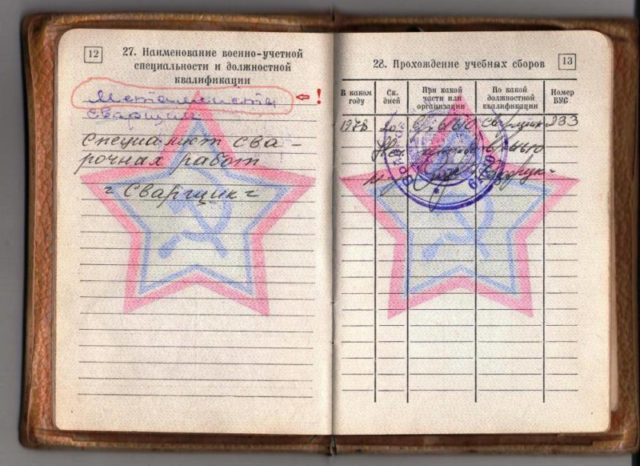 12
27. Наименование военно-учетной
специальности и должностной
квалификации
Металлисты
сварщик
Специалист сва-
рочных работ
"Сварщик"
28. Прохождение учебных сборов
13
В каком году
Ск. дней
При какой части или организации
По какой должностной квалификации
Номер ВУС
1978
сварщик
933
!